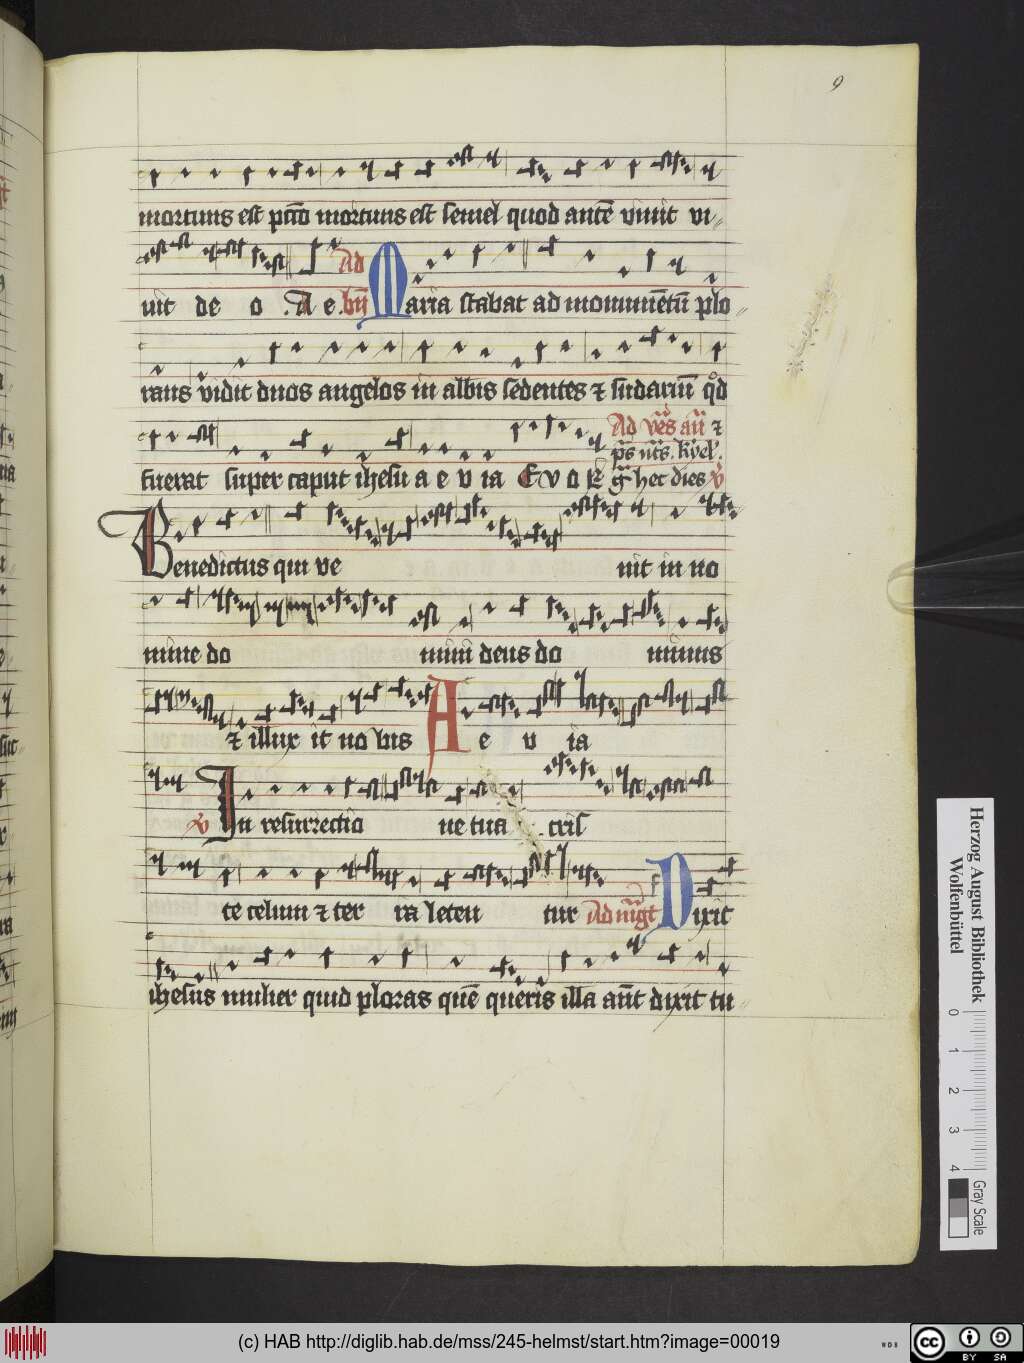 9
mortuus est pcc̄o mortuus est semel quod autē viuit vi⸗
uit de o . A e . Ad bn̄ Maria stabat ad monumētū plo⸗
rans vidit duos angelos in albis sedentes ⁊ sudariū qd
Ad ves an̄ ⁊
fuerat super caput ihesu a e v ia E v o hec dies
Benedictus qui ve nit in no
mine do mini deus do minus
⁊ illux it no bis A e v ia
In resurrectio ne tua cris
te celum ⁊ ter ra leten tur Ad Dixit
ihesus mulier quid ploras quē queris illa aūt dixit tu⸗
Herzog August Bibliothek
Wolfenbüttel
0 1 2 3 4
Gray Scale
(c) HAB http://diglib.hab.de/mss/245-helmst/start.htm?image=00019
WDB
cc BY SA